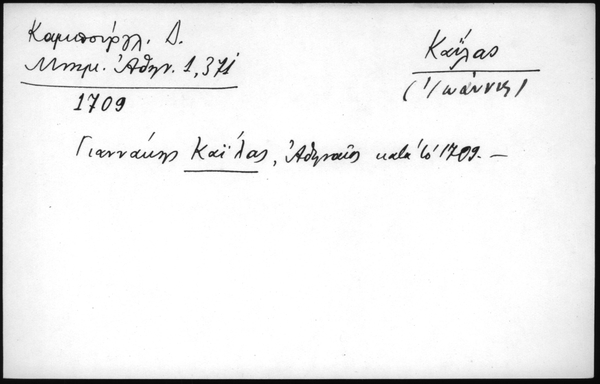 Καμπούργλ. Δ.
Μνημ. Ἀθην. 1,371
1709
Καΐλας
(Ἰωάννης)
Γιαννάκης Καΐλας, Ἀθηναῖος κατὰ τὸ 1709. —